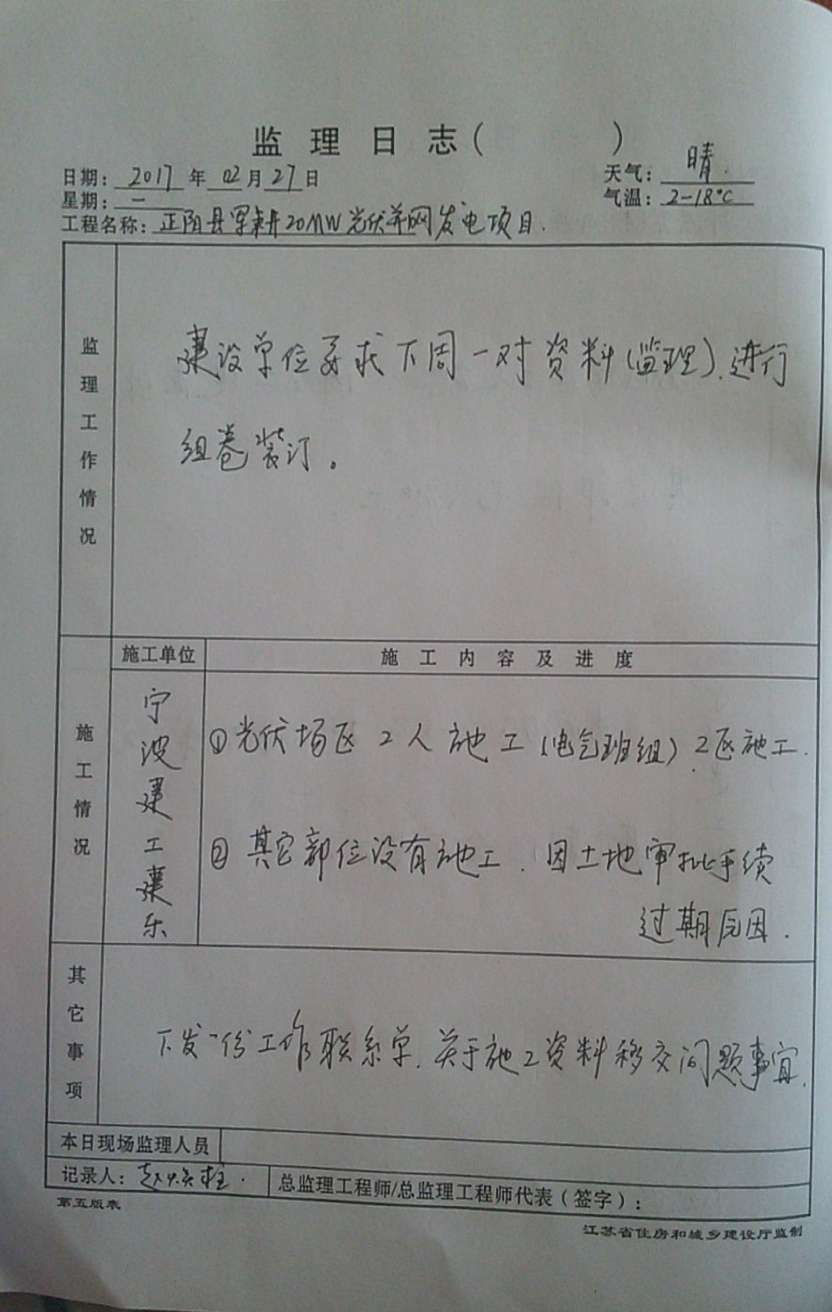 监理日志(          )
日期：2017年02月27日
天气：晴.
星期：一
气温：2-18°C
工程名称：正阳县军耕20MW光伏并网发电项目.
监理工作情况
建设单位要求下周一对资料(监理).进行
组卷装订。
施工情况
施工单位
施工内容及进度
宁波建工建乐
①光伏场区2人施工(电气班组).2区施工.
②其它部位没有施工.因土地审批手续
过期原因.
其它事项
下发一份工作联系单.关于施工资料移交问题事宜.
本日现场监理人员
记录人：赵
总监理工程师/总监理工程师代表(签字)：
第五版表
江苏省住房和城乡建设厅监制